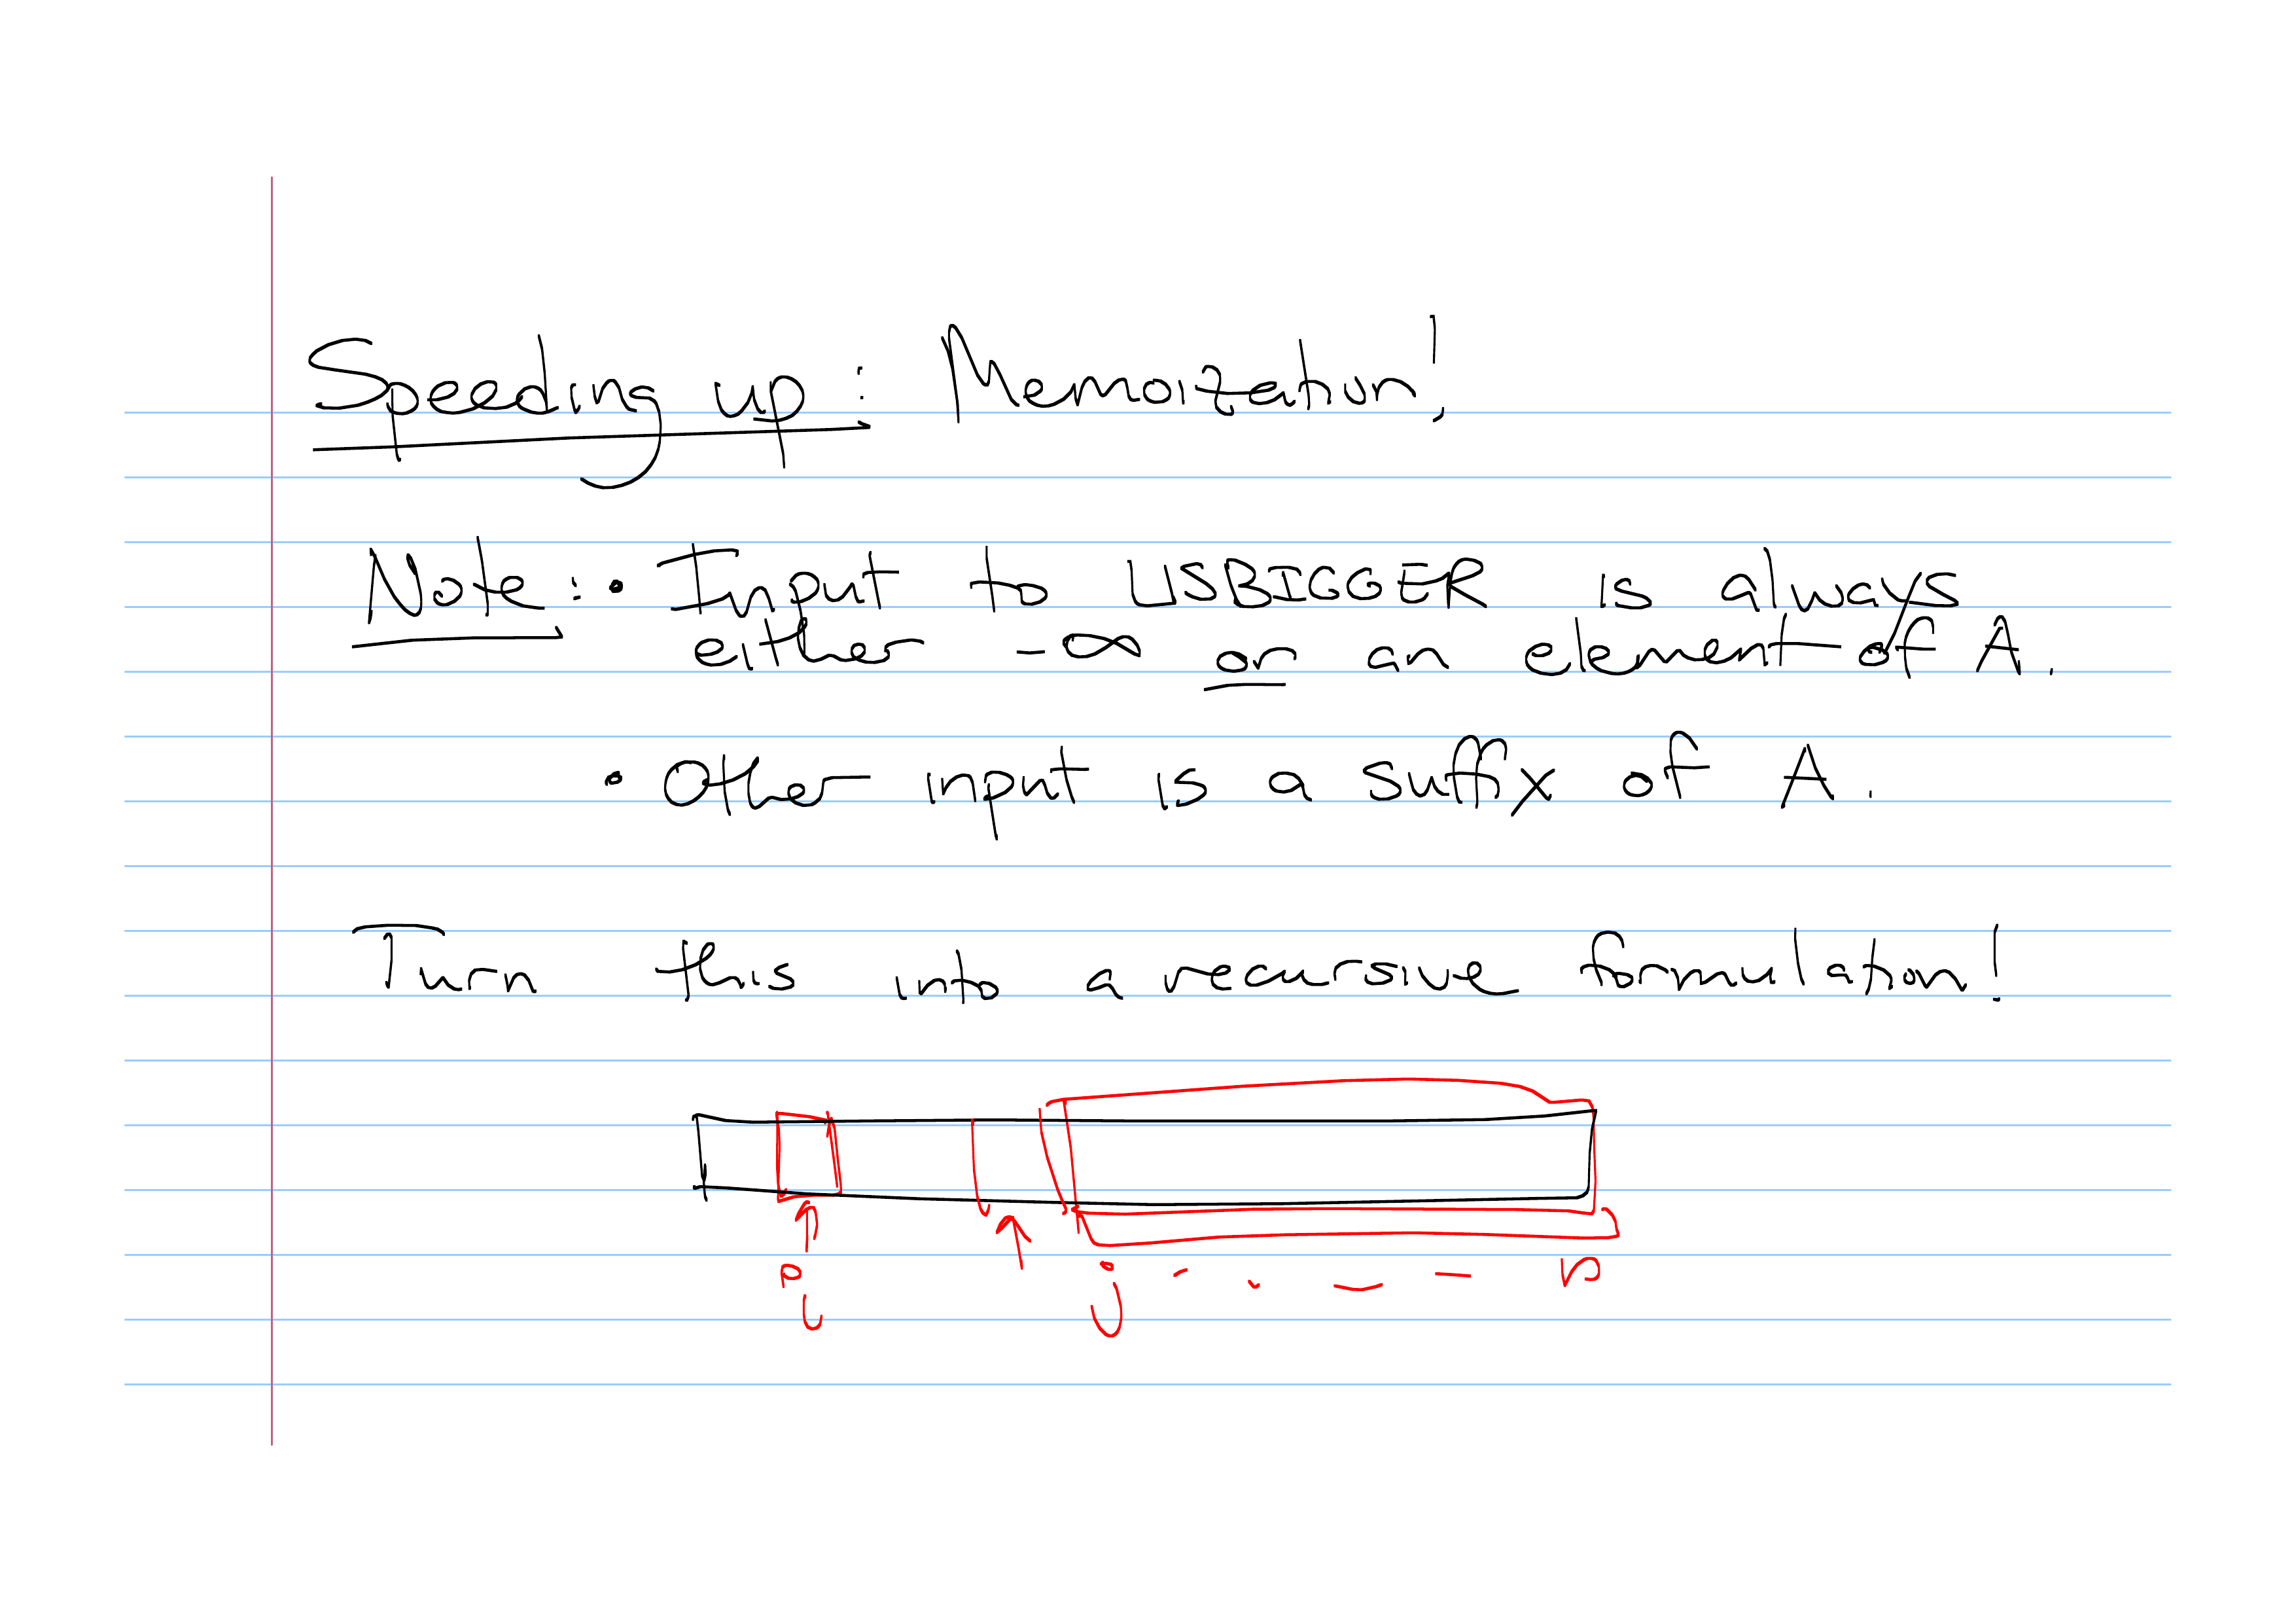 Speeding up: Memoization!
Note: • Input to LISBIGGER is always
either -∞ or an element of A.
• Other input is a suffix of A.
Turn this into a recursive formulation!
i j n